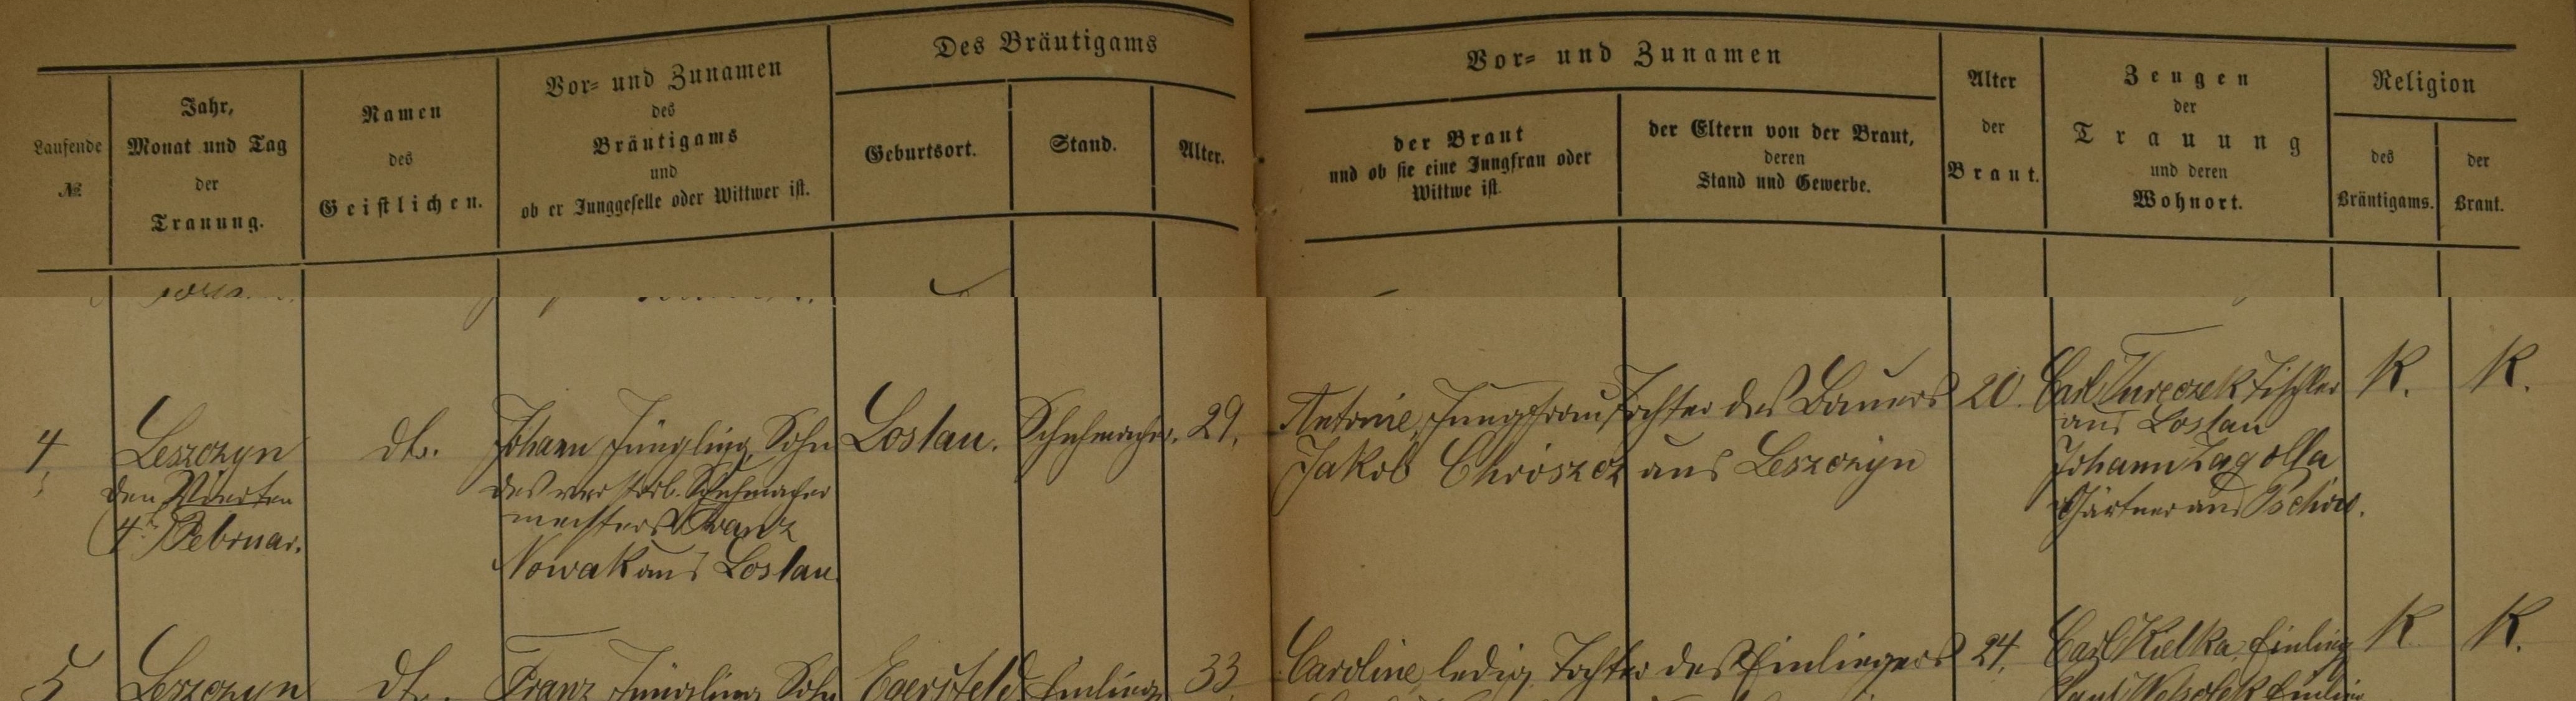 Laufende
№
Jahr,
Monat und Tag
der
Trauung.
Namen
des
Geistlichen.
Vor- und Zunamen
des
Bräutigams
und
ob er Junggeselle oder Wittwer ist.
Des Bräutigams
Geburtsort.
Stand.
Alter.
Vor- und Zunamen
der Braut
und ob sie eine Jungfrau oder
Wittwe ist.
der Eltern von der Braut,
deren
Stand und Gewerbe.
Alter
der
Braut.
Zeugen
der
Trauung
und deren
Wohnort.
Religion
des
Bräutigams.
der
Braut.
4.
Leszczyn
den Vierten
4. Februar.
dto.
Johann Jüngling, Sohn
des verstorb. Schuhmacher
meisters Franz
Nowak aus Loslau.
Loslau.
Schuhmacher.
29.
Antonie, Jungfrau Tochter des Bauers
Jakob Chroszcz aus Leszczyn
20.
Carl Tischler
aus Loslau
Johann Zagolla
Gärtner aus Pschow.
K.
K.
5
Leszczyn
dto.
Franz Jüngling, Sohn
Egersfeld
Einlieger
33
Caroline, ledig, Tochter des Einliegers
24.
Carl Kielka, Einlieg
K
K.